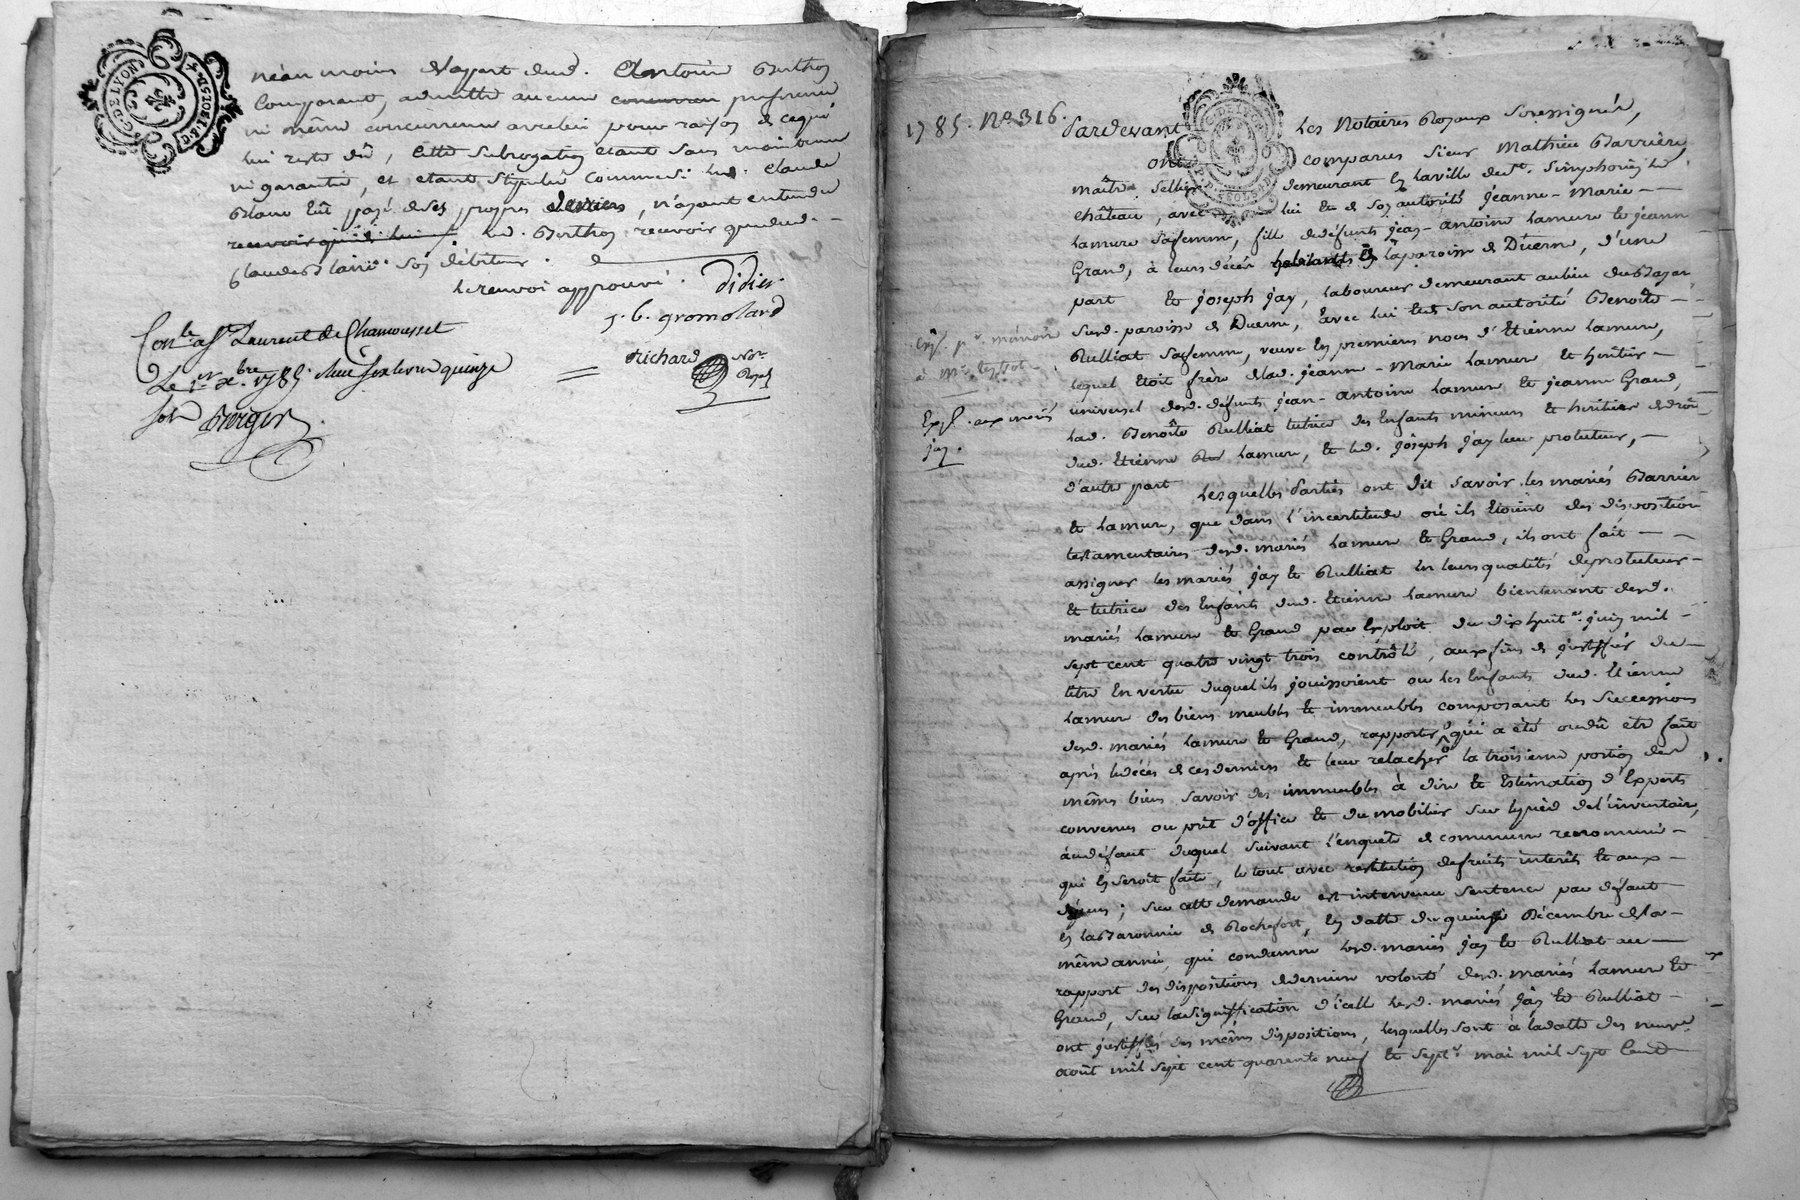 néanmoins dud. Antoine Berthoy
Comparant, admettre aucune concurrence preference
ni même concurrence avec lui pour raison de ce qui
lui reste dû, cette subrogation etant sans maintenue
ni garantie, et etant stipulé comme si led. Claude
Blanc eût payé de ses propres deniers, n'ayant entendu
recevoir qu'il lui led. Berthoy recevoir que dud.
Claude Blanc son débiteur.
le renvoi approuvé. Didier
j. b. gromolard
Conlé. a St Laurent de Chamousset
Le 1er xbre 1785. Reçu quinze
richard Nore
Royal
Berger
G. DE LYON
1785. No 316.
Pardevant les Notaires Royaux Soussignés,
ont comparus sieur Mathieu Barrière,
maître sellier demeurant en la ville de St. Simphorien le
château, avec lui et de son autorité jeanne-Marie
Lamure sa femme, fille de défunts jean-antoine Lamure et jeanne
Grand, à leurs décès habitants en la paroisse de Duerne, d'une
part et joseph jay, laboureur demeurant au lieu du
sud. paroisse de Duerne, avec lui et de son autorité Benoîte
Rulliat sa femme, veuve en premieres noces d'Etienne Lamure,
lequel étoit frère de lad. jeanne-Marie Lamure et heritier
universel desd. défunts jean-antoine Lamure et jeanne Grand,
Exp. aux mariés
jay.
lad. Benoîte Rulliat tutrice des Enfants mineurs et heritiers de droit
dud. Etienne Lamure, et led. joseph jay leur protuteur,
d'autre part Lesquelles Parties ont dit savoir les mariés Barrier
et Lamure, que dans l'incertitude où ils étoient des disposition
testamentaires desd. mariés Lamure et Grand, ils ont fait
assigner les mariés jay et Rulliat en leurs qualités de protuteur
et tutrice des Enfants dud. Etienne Lamure bientenant desd.
mariés Lamure et Grand par Exploit du dix huit juin mil
sept cent quatre vingt trois contrôlé, aux fins de justifier du
titre En vertu duquel ils jouissoient ou les Enfants dud. Etienne
Lamure des biens meubles et immeubles composant les successions
desd. mariés Lamure et Grand, rapporter qui a été ou dû etre fait
après le décès de ces derniers et leur relacher la troisieme portion des
mêmes biens savoir des immeubles à dire et Estimation d'Experts
convenus ou pris d'office et du mobilier sur le pied de l'inventaire,
au défaut duquel suivant l'enquête de commune renommée
qui en seroit faite, le tout avec restitution de fruits interêts et aux
dépens; sur cette demande est intervenue sentence par défaut
en la Baronnie de Rochefort, en datte du quinze Décembre de la
même année, qui condamne lesd. mariés jay et Rulliat au
rapport des dispositions de derniere volonté desd. mariés Lamure et
Grand, sur la signiffication d'icelle lesd. mariés jay et Rulliat
ont justiffiés des mêmes dispositions, lesquelles sont à la datte des neuf
août mil sept cent quarante neuf et sept mai mil sept cent